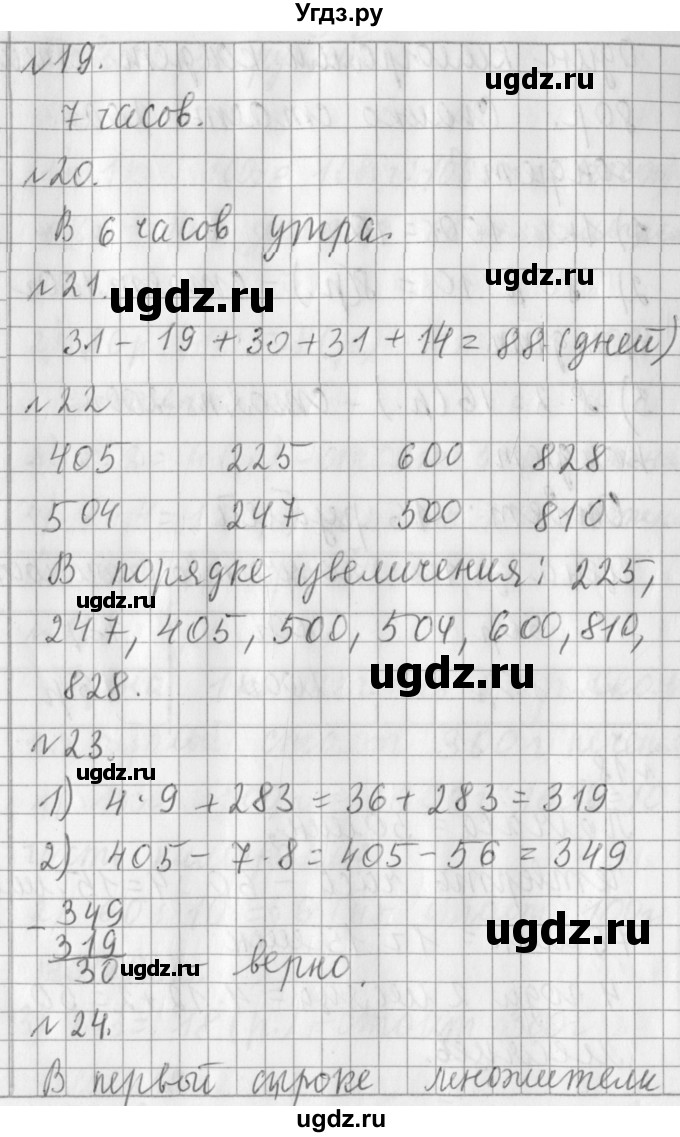 Угдз.ру
№19.
ugdz.ru
7 часов.
№20.
В 6 часов утра.
ugdz.ru
№21.
ugdz.ru
31 - 19 + 30 + 31 + 14 = 88 (дней)
№22
405 225 600 828
504 247 500 810
В порядке увеличения: 225,
ugdz.ru
247, 405, 500, 504, 600, 810,
ugdz.ru
828.
№23.
ugdz.ru
1) 4 · 9 + 283 = 36 + 283 = 319
2) 405 - 7 · 8 = 405 - 56 = 349
- 349
319
30 - верно.
ugdz.ru
ugdz.ru
№24.
В первой строке множители
ugdz.ru